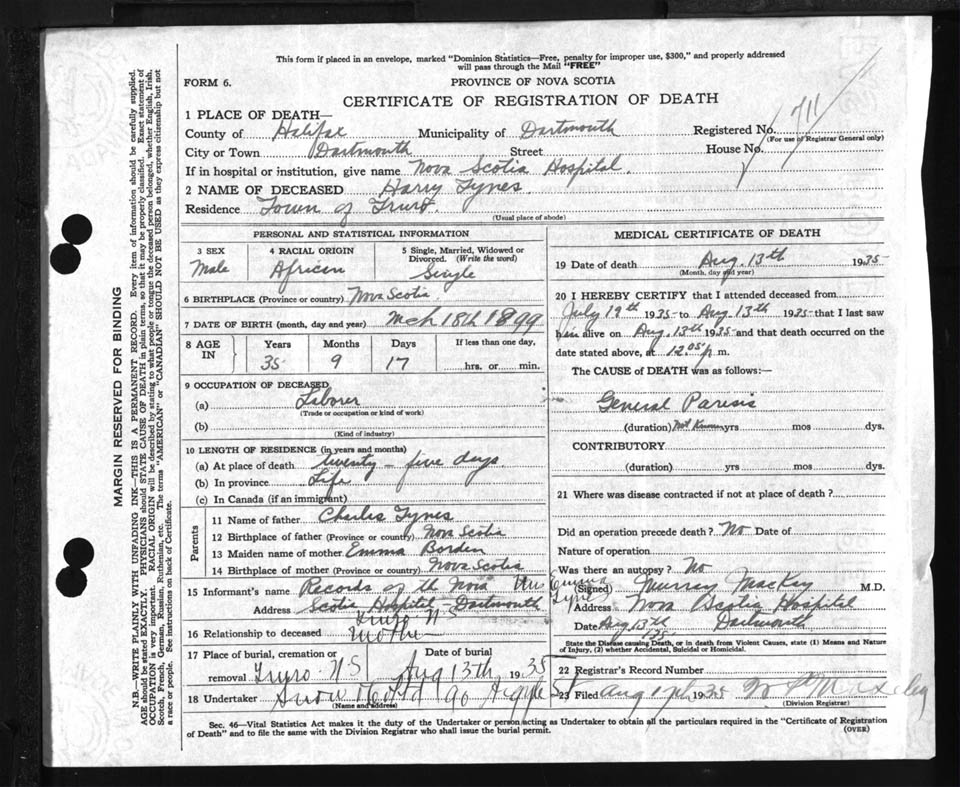 This form if placed in an envelope, marked "Dominion Statistics—Free, penalty for improper use, $300," and properly addressed
will pass through the Mail "FREE"
FORM 6.
PROVINCE OF NOVA SCOTIA
CERTIFICATE OF REGISTRATION OF DEATH
1 PLACE OF DEATH—
County of Halifax Municipality of Dartmouth Registered No. 711
(For use of Registrar General only)
City or Town Dartmouth Street House No.
If in hospital or institution, give name Nova Scotia Hospital.
2 NAME OF DECEASED Harry Tynes.
Residence Town of Truro.
(Usual place of abode)
PERSONAL AND STATISTICAL INFORMATION
3 SEX
Male
4 RACIAL ORIGIN
African
5 Single, Married, Widowed or
Divorced. (Write the word)
Single
6 BIRTHPLACE (Province or country) Nova Scotia.
7 DATE OF BIRTH (month, day and year) Mch 18th 1899
8 AGE IN
Years Months Days If less than one day,
35 9 17 hrs. or min.
9 OCCUPATION OF DECEASED
(a) Laborer
(Trade or occupation or kind of work)
(b)
(Kind of industry)
10 LENGTH OF RESIDENCE (in years and months)
(a) At place of death twenty-five days
(b) In province Life
(c) In Canada (if an immigrant)
Parents
11 Name of father Charles Tynes
12 Birthplace of father (Province or country) Nova Scotia
13 Maiden name of mother Emma Borden
14 Birthplace of mother (Province or country) Nova Scotia
15 Informant's name Records of the Nova Mrs Emma Tyne
Address Scotia Hospital - Dartmouth
Truro N S
16 Relationship to deceased Mother
17 Place of burial, cremation or
removal Truro N S
Date of burial
Aug 13th 1935
18 Undertaker Snow
(Name and address)
MEDICAL CERTIFICATE OF DEATH
19 Date of death Aug. 13th 1935
(Month, day and year)
20 I HEREBY CERTIFY that I attended deceased from
July 19th 1935 to Aug 13th 1935 that I last saw
him alive on Aug. 13th 1935 and that death occurred on
date stated above, at 12.05 p m.
The CAUSE of DEATH was as follows:—
General Paresis
(duration) Not Known yrs mos dys.
CONTRIBUTORY
(duration) yrs mos dys.
21 Where was disease contracted if not at place of death?
Did an operation precede death? No Date of
Nature of operation
Was there an autopsy? No
(Signed) Murray MacKay M.D.
Address Nova Scotia Hospital
Date Aug 13th /35 Dartmouth
State the Disease causing Death, or in death from Violent Causes, state (1) Means and Nature
of Injury, (2) whether Accidental, Suicidal or Homicidal.
22 Registrar's Record Number
23 Filed Aug 1935
(Division Registrar)
Sec. 46—Vital Statistics Act makes it the duty of the Undertaker or person acting as Undertaker to obtain all the particulars required in the "Certificate of Registration
of Death" and to file the same with the Division Registrar who shall issue the burial permit.
(OVER)
MARGIN RESERVED FOR BINDING
N.B.—WRITE PLAINLY WITH UNFADING INK—THIS IS A PERMANENT RECORD. Every item of information should be carefully supplied.
AGE should be stated EXACTLY. PHYSICIANS should STATE CAUSE OF DEATH in plain terms, so that it may be properly classified. Exact statement of
OCCUPATION is very important. RACIAL ORIGIN will be described by stating to what people or tongue the deceased person belonged, whether English, Irish,
Scotch, French, German, Russian, Ruthenian, etc. The terms "AMERICAN" or "CANADIAN" SHOULD NOT BE USED as they express citizenship but not
a race or people. See instructions on back of Certificate.